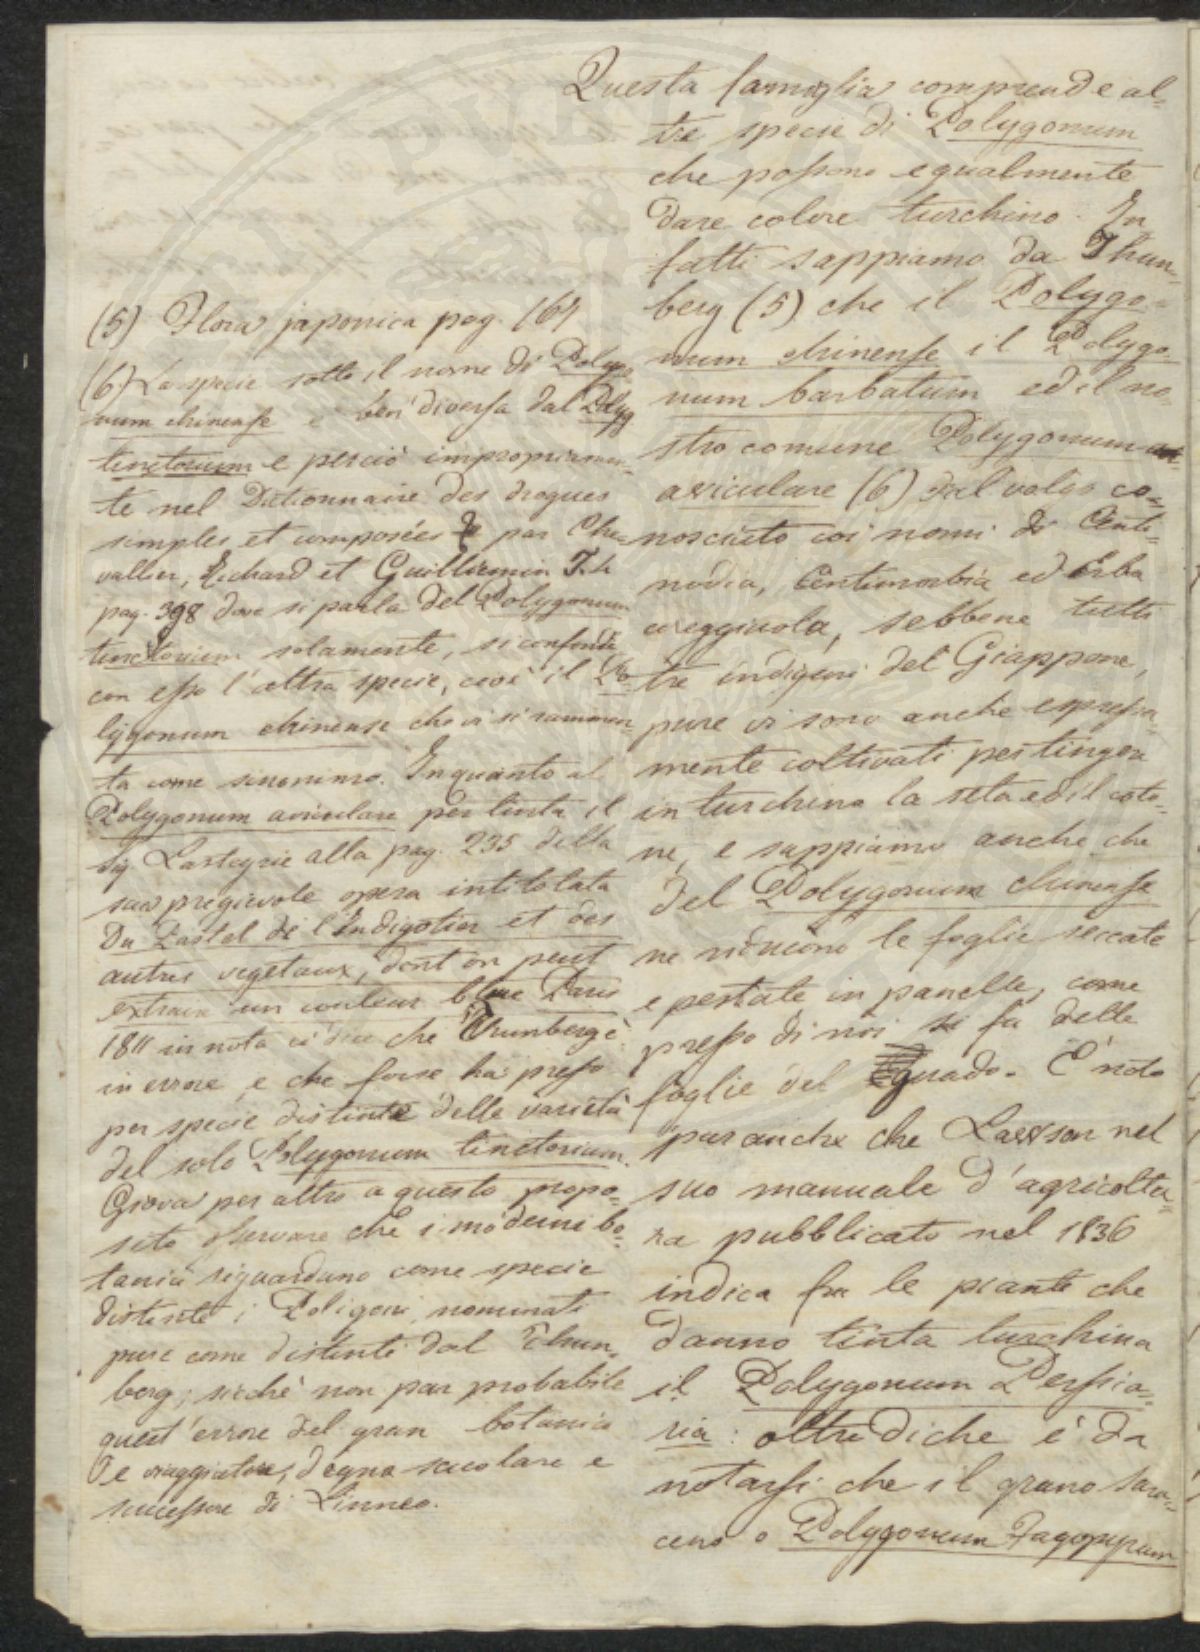 Questa famiglia comprende al=
tre specie di Polygonum
che possono egualmente
dare colore turchino. In
fatti sappiamo da Thun=
berg (5) che il Polygo=
num chinense il Polygo=
num barbatum ed il no=
stro comune Polygonum
aviculare (6) dal volgo co=
nosciuto coi nomi di Centi=
nodia, Centimorbia ed Erba
coreggiuola, sebbene tutti
tre indigeni del Giappone,
pure vi sono anche espressa=
mente coltivati per tingere
in turchino la seta ed il coto=
ne, e sappiamo anche che
del Polygonum chinense
ne riducono le foglie seccate
e pestate in panelle, come
presso di noi si fa delle
foglie del guado. E' noto
pur anche che Lawson nel
suo manuale d'agricoltu=
ra pubblicato nel 1836
indica fra le piante che
danno tinta turchina
il Polygonum Persica=
ria: oltrediche è da
notarsi che il grano Sara=
ceno o Polygonum Fagopyrum
(5) Flora japonica pag. 169
(6) La specie sotto il nome di Polygo
num chinense è ben diversa dal Polyg
tinctorium e perciò impropriamen=
te nel Dictionnaire des drogues
simples et composées par Che=
vallier, Richard et Guillemin T.
pag. 398 dove si parla del Polygonum
tinctorium solamente, si confonde
con esso l'altra specie, cioè il Po=
lygonum chinense che vi si rammen
ta come sinonimo. Inquanto al
Polygonum aviculare per tinta il
Sig. Lasteyrie alla pag. 235 della
sua pregievole opera intitolata
Du Pastel de l'Indigotier et des
autres vegetaux, dont on peut
extraire un couleur bleue Paris
1811 in nota ci dice che Thunberg è
in errore, e che forse ha preso
per specie distinte delle varietà
del solo Polygonum tinctorium.
Giova per altro a questo propo=
sito osservare che i moderni bo=
tanici riguardano come specie
distinte i Poligoni nominati
pure come distinti dal Thun=
berg; sicchè non par probabile
quest'errore del gran botanico
e viaggiatore, degno scolare e
successore di Linneo.